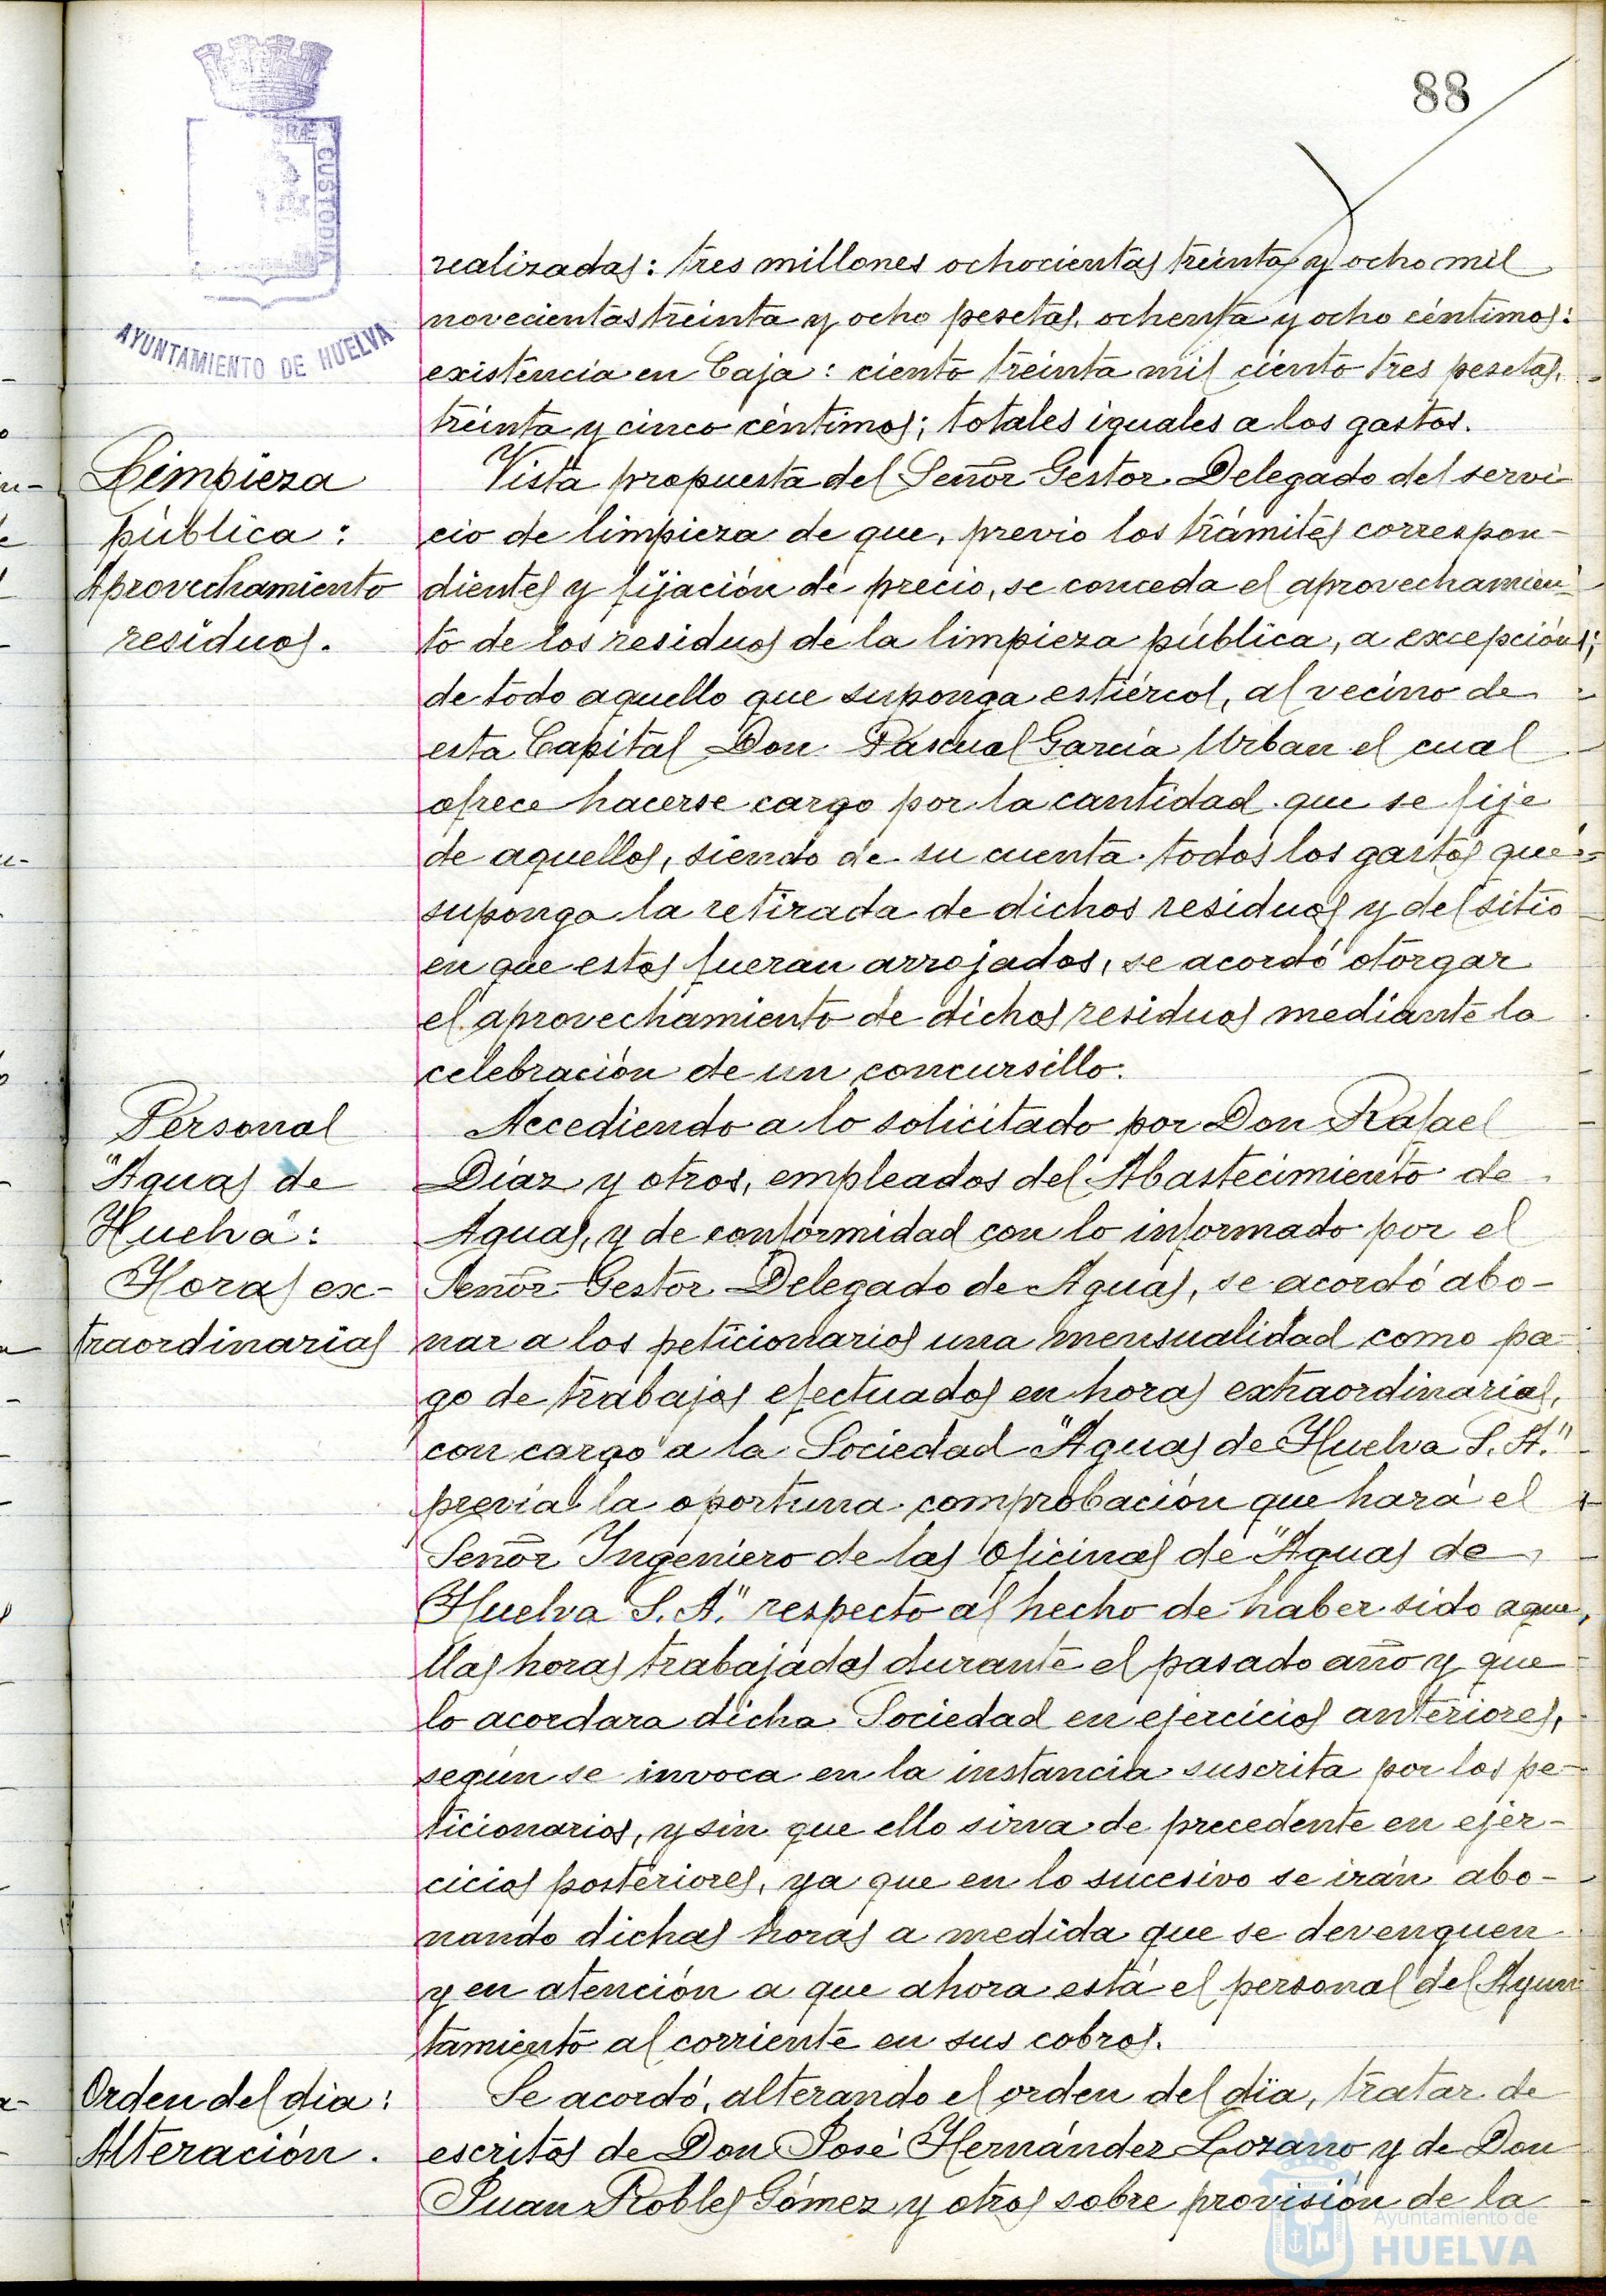 88
CUSTODIA
AYUNTAMIENTO DE HUELVA
realizadas: tres millones ochocientas treinta y ocho mil
novecientas treinta y ocho pesetas, ochenta y ocho céntimos:
existencia en Caja: ciento treinta mil ciento tres pesetas,
treinta y cinco céntimos; totales iguales a los gastos.
Limpieza
pública:
Aprovechamiento
residuos.
Vista propuesta del Señor Gestor Delegado del servi-
cio de limpieza de que, previo los trámites correspon-
dientes y fijación de precio, se conceda el aprovechamien-
to de los residuos de la limpieza pública, a excepción
de todo aquello que suponga estiércol, al vecino de
esta Capital Don Pascual García Urban el cual
ofrece hacerse cargo por la cantidad que se fije
de aquellos, siendo de su cuenta todos los gastos que
suponga la retirada de dichos residuos y del sitio
en que estos fueran arrojados, se acordó otorgar
el aprovechamiento de dichos residuos mediante la
celebración de un concursillo.
Personal
"Aguas de
Huelva":
Horas ex-
traordinarias
Accediendo a lo solicitado por Don Rafael
Díaz y otros, empleados del Abastecimiento de
Aguas, y de conformidad con lo informado por el
Señor Gestor Delegado de Aguas, se acordó abo-
nar a los peticionarios una mensualidad como pa-
go de trabajos efectuados en horas extraordinarias,
con cargo a la Sociedad "Aguas de Huelva S. A."
previa la oportuna comprobación que hará el
Señor Ingeniero de las Oficinas de "Aguas de
Huelva S. A." respecto al hecho de haber sido aque-
llas horas trabajadas durante el pasado año y que
lo acordara dicha Sociedad en ejercicios anteriores,
según se invoca en la instancia suscrita por los pe-
ticionarios, y sin que ello sirva de precedente en ejer-
cicios posteriores, ya que en lo sucesivo se irán abo-
nando dichas horas a medida que se devenguen
y en atención a que ahora está el personal del Ayun-
tamiento al corriente en sus cobros.
Orden del día:
Alteración.
Se acordó, alterando el orden del día, tratar de
escritos de Don José Hernández Lozano y de Don
Juan Robles Gómez y otros sobre provisión de la
Ayuntamiento de
HUELVA